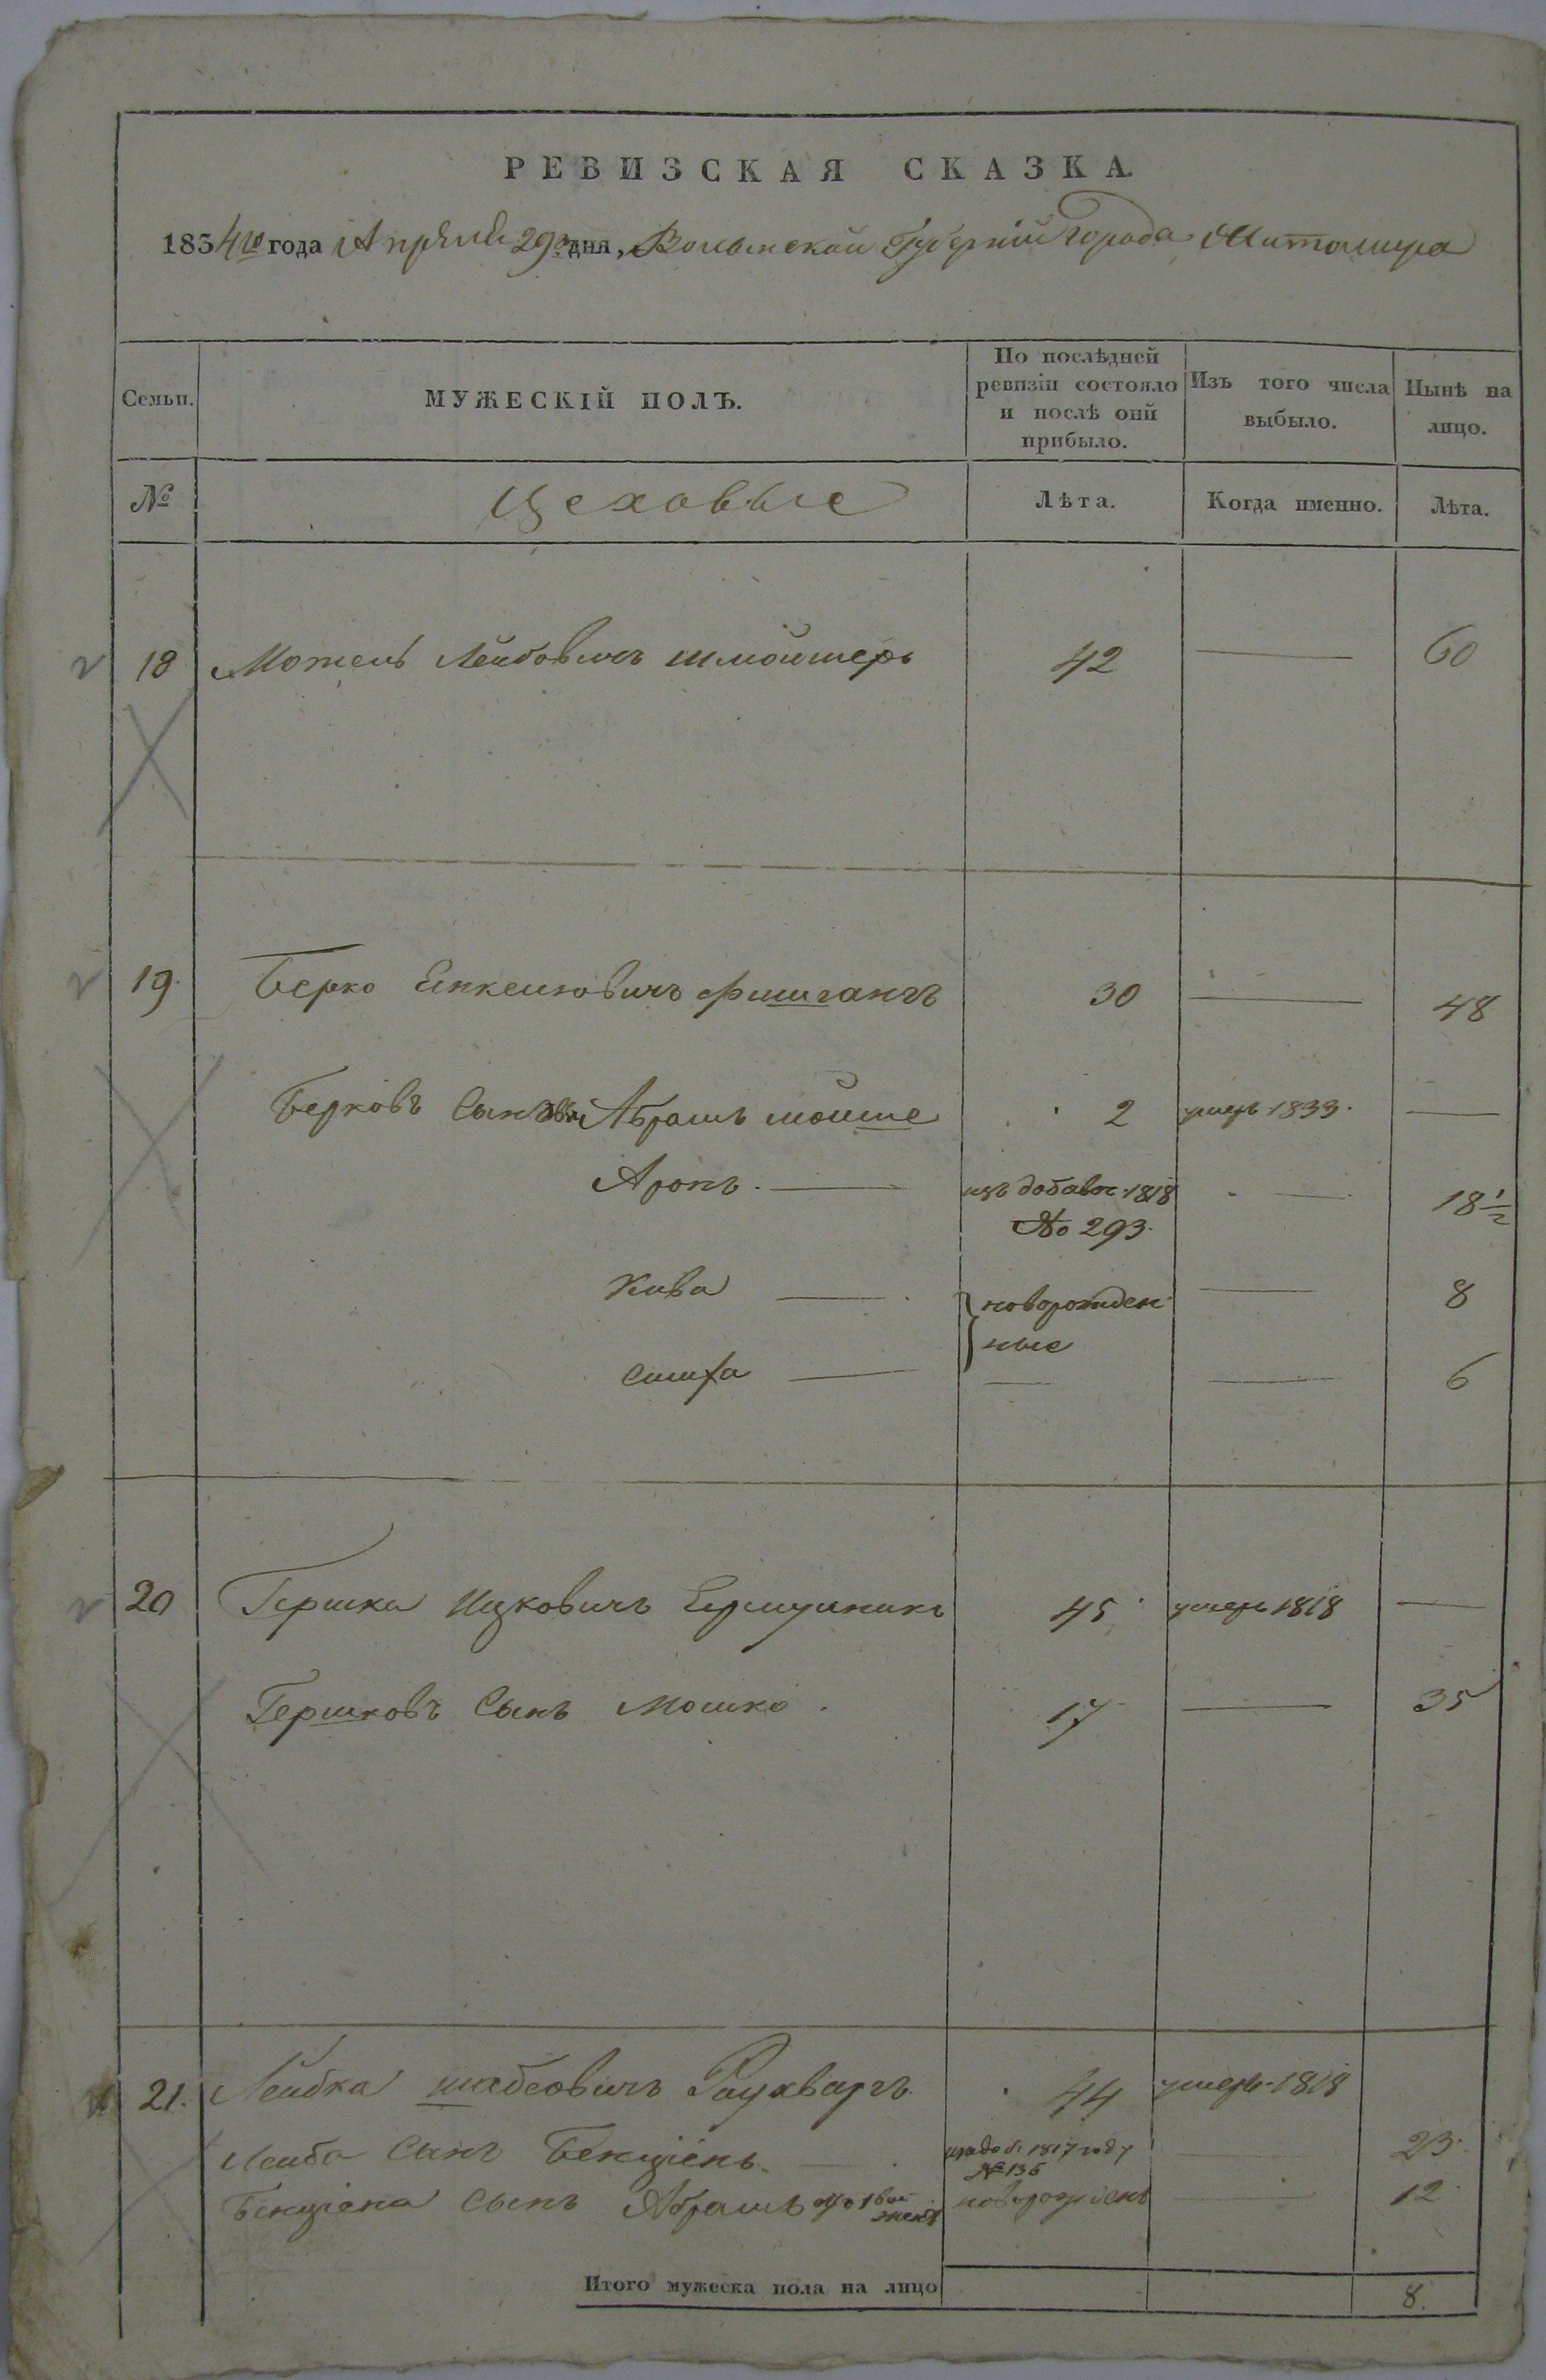 РЕВИЗСКАЯ СКАЗКА.
1834го года Апреля 29го дня, Волынской Губерніи города Житомира
Семьи.
МУЖЕСКІЙ ПОЛЪ.
По послѣдней ревизіи состояло и послѣ оній прибыло.
Изъ того числа выбыло.
Нынѣ на лицо.
№
Цеховые
Лѣта.
Когда именно.
Лѣта.
18 Мотель Лейбовичъ 42 — 60
19. Берко Енкелювичъ Фишгангъ 30 — 48
Берковъ Сыновья Абрамъ мойше 2 умеръ 1833. —
Аронъ. — изъ добавоч. 1818 — 18 1/2
№ 293.
Кива — новорожден — 8
ные
Симха — — — 6
20 Гершко Ицковичъ 45 умеръ 1818 —
Гершковъ Сынъ Мошко. 17 — 35
21. Лейбка шабсовичъ Раухваргъ. 44 умеръ 1818
Лейба Сынъ Бенціенъ. — изъ доб. 1817 году — 23.
№ 136
Бенціена Сынъ Абрамъ отъ 1вой новорожденъ — 12.
жены
Итого мужеска пола на лицо 8.